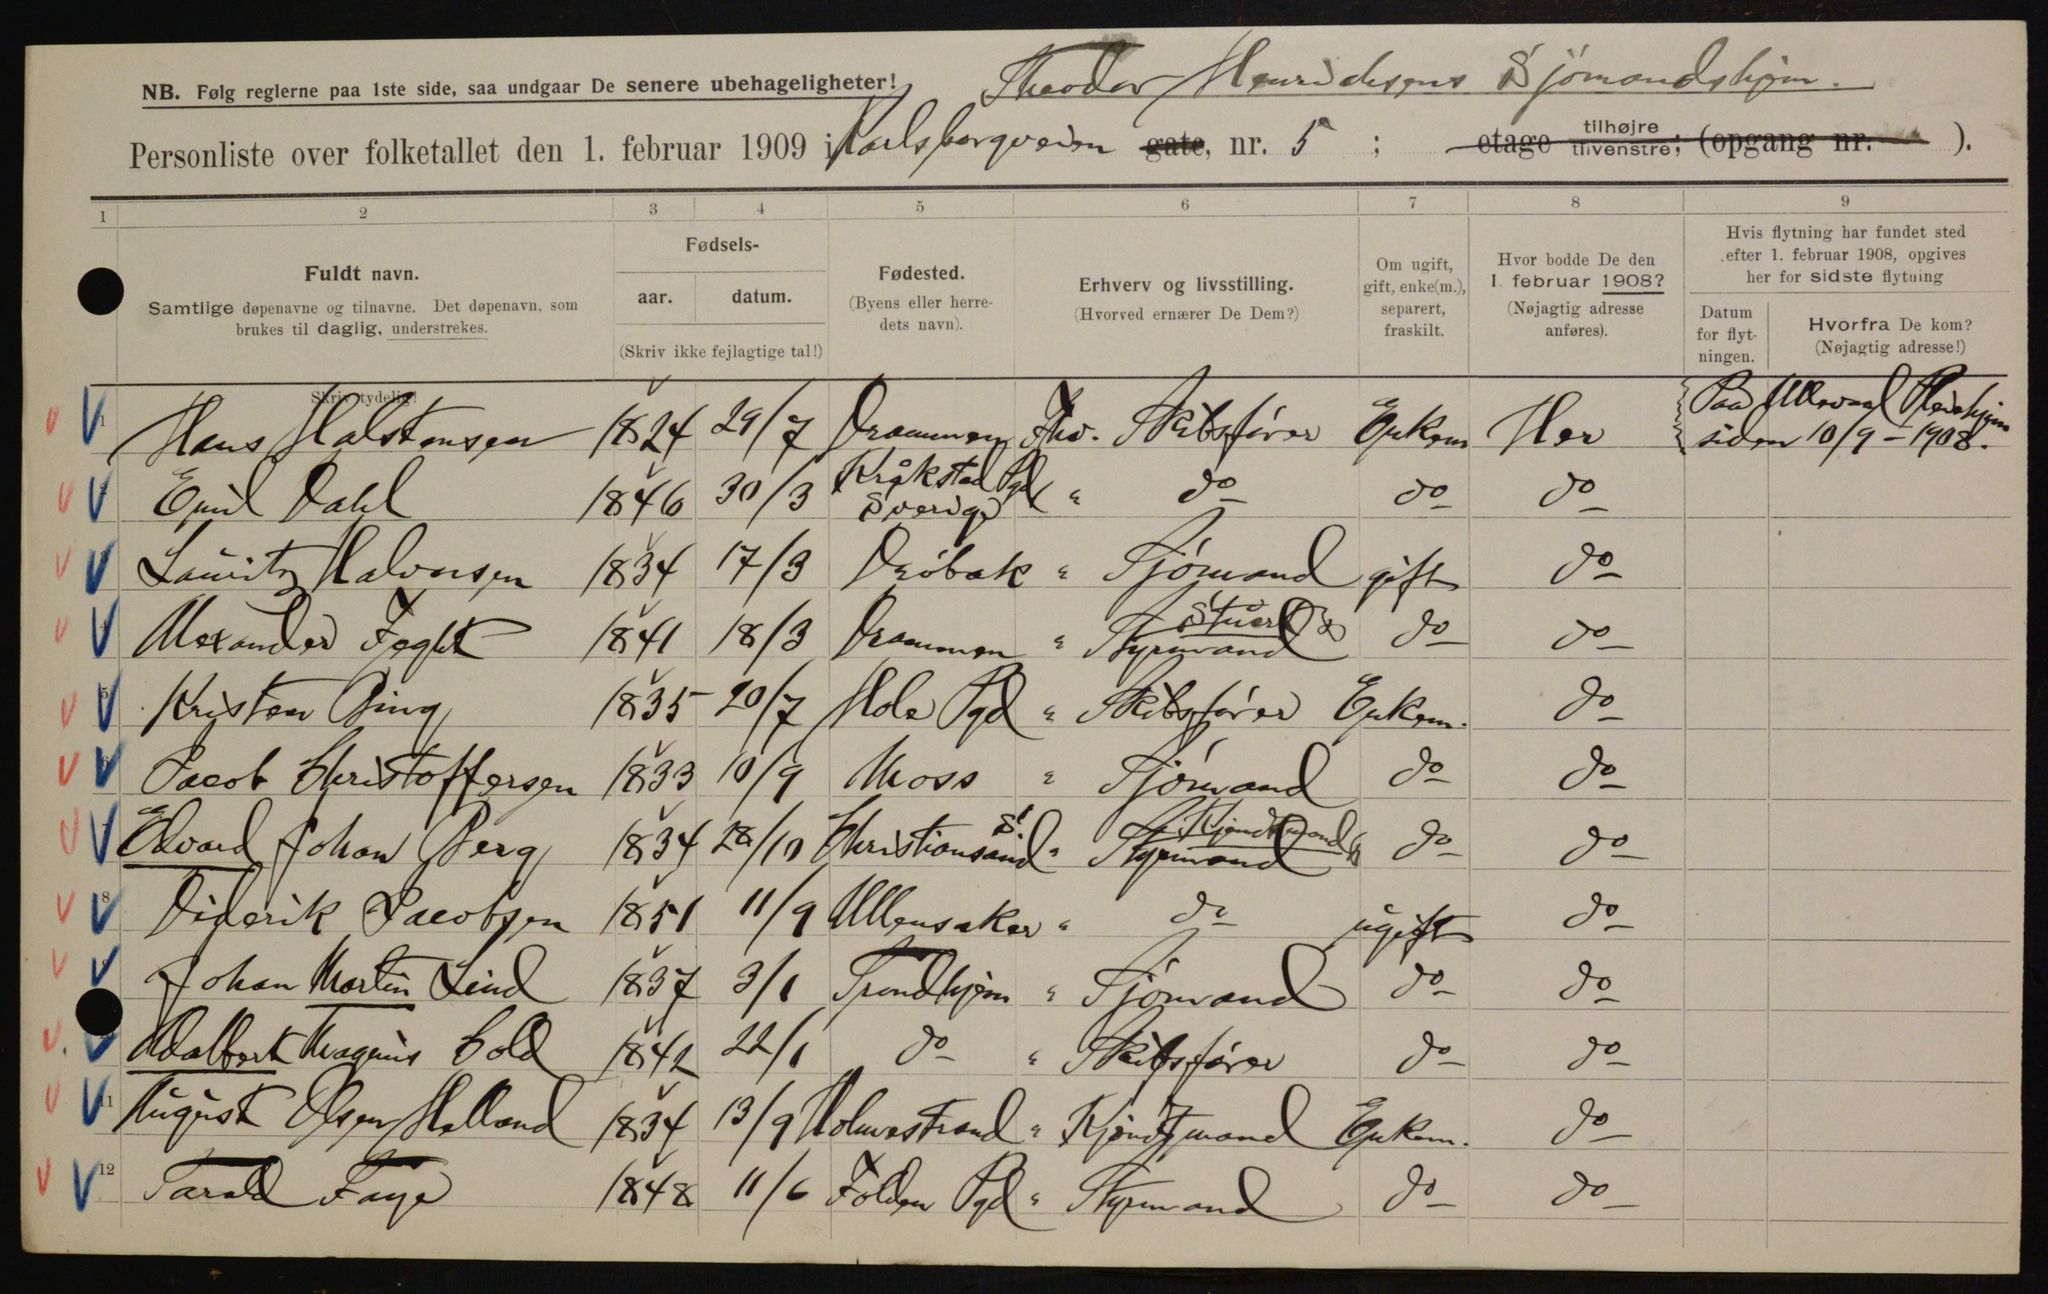 Theodor Henrichsens Sjómandshjem.
NB. Følg reglerne paa 1ste side, saa undgaar De senere ubehageligheter!
Personliste over folketallet den 1. februar 1909 i Karlsborgveien gate, nr. 5 ; etage tilhøjre tilvenstre; (opgang nr. ).
1 2 3 4 5 6 7 8 9
Fuldt navn.
Samtlige døpenavne og tilnavne. Det døpenavn, som
brukes til daglig, understrekes.
Skriv tydelig!
Fødsels-
aar. datum.
(Skriv ikke fejlagtige tal!)
Fødested.
(Byens eller herre-
dets navn).
Erhverv og livsstilling.
(Hvorved ernærer De Dem?)
Om ugift,
gift, enke(m.),
separert,
fraskilt.
Hvor bodde De den
1. februar 1908?
(Nøjagtig adresse
anføres).
Hvis flytning har fundet sted
efter 1. februar 1908, opgives
her for sidste flytning
Datum
for flyt-
ningen.
Hvorfra De kom?
(Nøjagtig adresse!)
1 Hans Halstensen 1824 29/7 Drammen Fhv. Skibsfører Enkem Her Paa Ullevaal Pleiehjem siden 10/9 - 1908.
2 Emil Dahl 1846 30/3 Kråkstad Pgd Sverige " do do do
3 Lauritz Halvorsen 1834 17/3 Drøbak " Sjómand gift do
4 Alexander Feght 1841 18/3 Drammen " Styrmand Stuert do do
5 Kristen Bing 1835 20/7 Hole Pgd " Skibsfører Enkem. do
6 Jacob Christoffersen 1833 10/9 Moss " Sjómand do do
7 Edvard Johan Berg 1834 28/10 Christiansand S. " Styrmand Kjendtmand do do
8 Diderik Jacobsen 1851 11/9 Ullensaker " do ugift do
9 Johan Martin Lind 1837 3/1 Trondhjem " Sjómand do do
10 Adalbert Magnus Cold 1842 22/1 do " Skibsfører do do
11 August Olsen Holland 1834 13/9 Holmestrand " Kjendtmand Enkem. do
12 Tarald Faye 1848 11/6 Folden Pgd " Styrmand do do